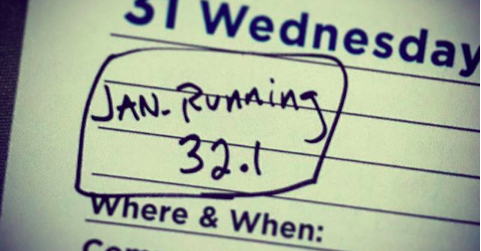 31 Wednesday
JAN. Running
32.1
Where & When: